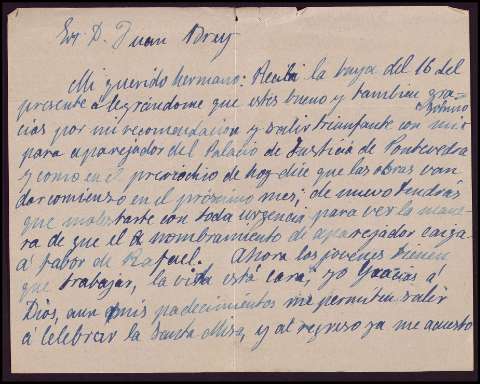 Sr. D. Juan Brey
Mi querido hermano: Recibí la tuya del 16 del
presente alegrándome que estés bueno y tambien gra-
cias por mi recomendacion y salir triunfante con mi
sobrino
para aparejador del Palacio de Justicia de Pontevedra
y como en el periodico de hoy dice que las obras van
dar comienzo en el próximo mes; de nuevo tendrás
que molestarte con toda urgencia para ver la mane-
ra de que el nombramiento de aparejador caiga
á fabor de Rafael. Ahora los jovenes tienen
que trabajar, la vida está cara; yo Gracias á
Dios, aun mis padecimientos me permiten salir
á celebrar la Santa Misa, y al regreso ya me acuesto